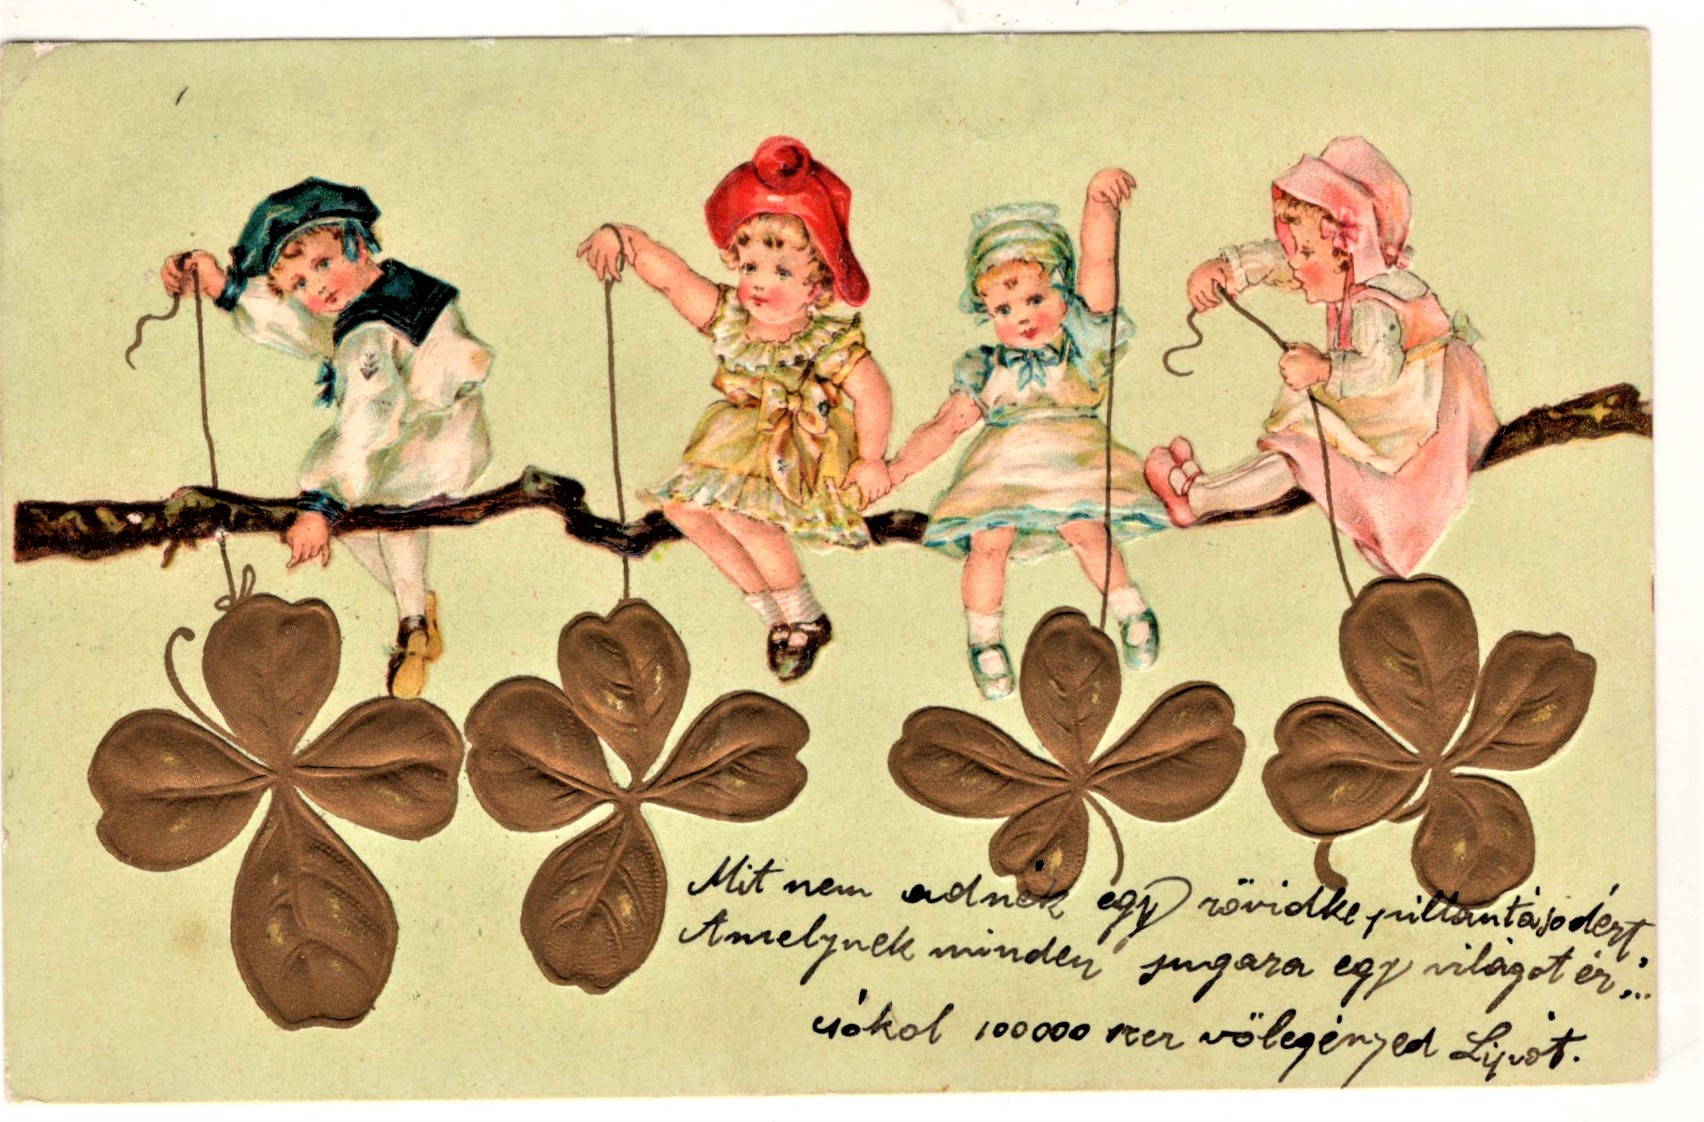 Mit nem adnék egy rövidke pillantásodért,
Amelynek minden sugara egy világot ér,...
csókol 100000 szer vőlegényed Lipót.